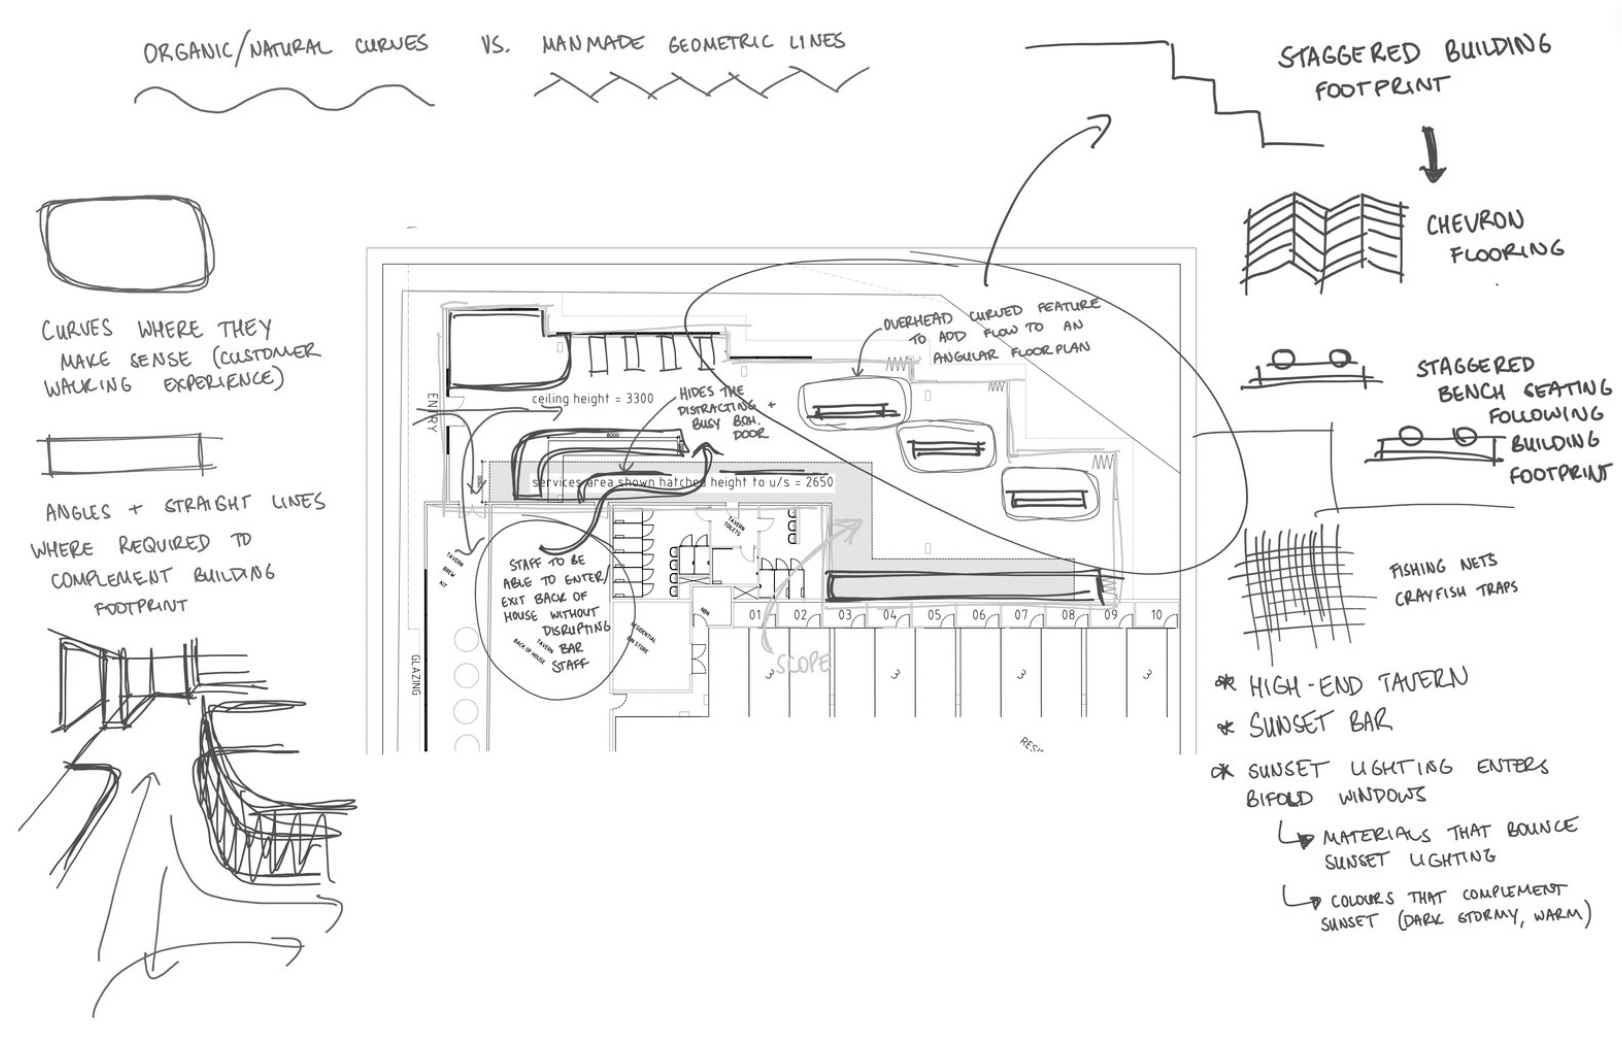 ORGANIC/NATURAL CURVES VS. MANMADE GEOMETRIC LINES
STAGGERED BUILDING
FOOTPRINT
CHEVRON
FLOORING
STAGGERED
BENCH SEATING
FOLLOWING
BUILDING
FOOTPRINT
FISHING NETS
CRAYFISH TRAPS
* HIGH-END TAVERN
* SUNSET BAR
* SUNSET LIGHTING ENTERS
BIFOLD WINDOWS
MATERIALS THAT BOUNCE
SUNSET LIGHTING
COLOURS THAT COMPLEMENT
SUNSET (DARK STORMY, WARM)
CURVES WHERE THEY
MAKE SENSE (CUSTOMER
WALKING EXPERIENCE)
ANGLES + STRAIGHT LINES
WHERE REQUIRED TO
COMPLEMENT BUILDING
FOOTPRINT
OVERHEAD CURVED FEATURE
TO ADD FLOW TO AN
ANGULAR FLOORPLAN
ENTRY
ceiling height = 3300
HIDES THE
DISTRACTING +
BUSY B.O.H.
DOOR
8000
services area shown hatched height to u/s = 2650
TAVERN
TOILETS
TAVERN
BREW
KIT
STAFF TO BE
ABLE TO ENTER/
EXIT BACK OF
HOUSE WITHOUT
DISRUPTING
BAR
STAFF
TAVERN
BACK OF HOUSE
RESIDENTIAL
BIN STORE
GLAZING
01 02 03 04 05 06 07 08 09 10
SCOPE
3 3 3 3